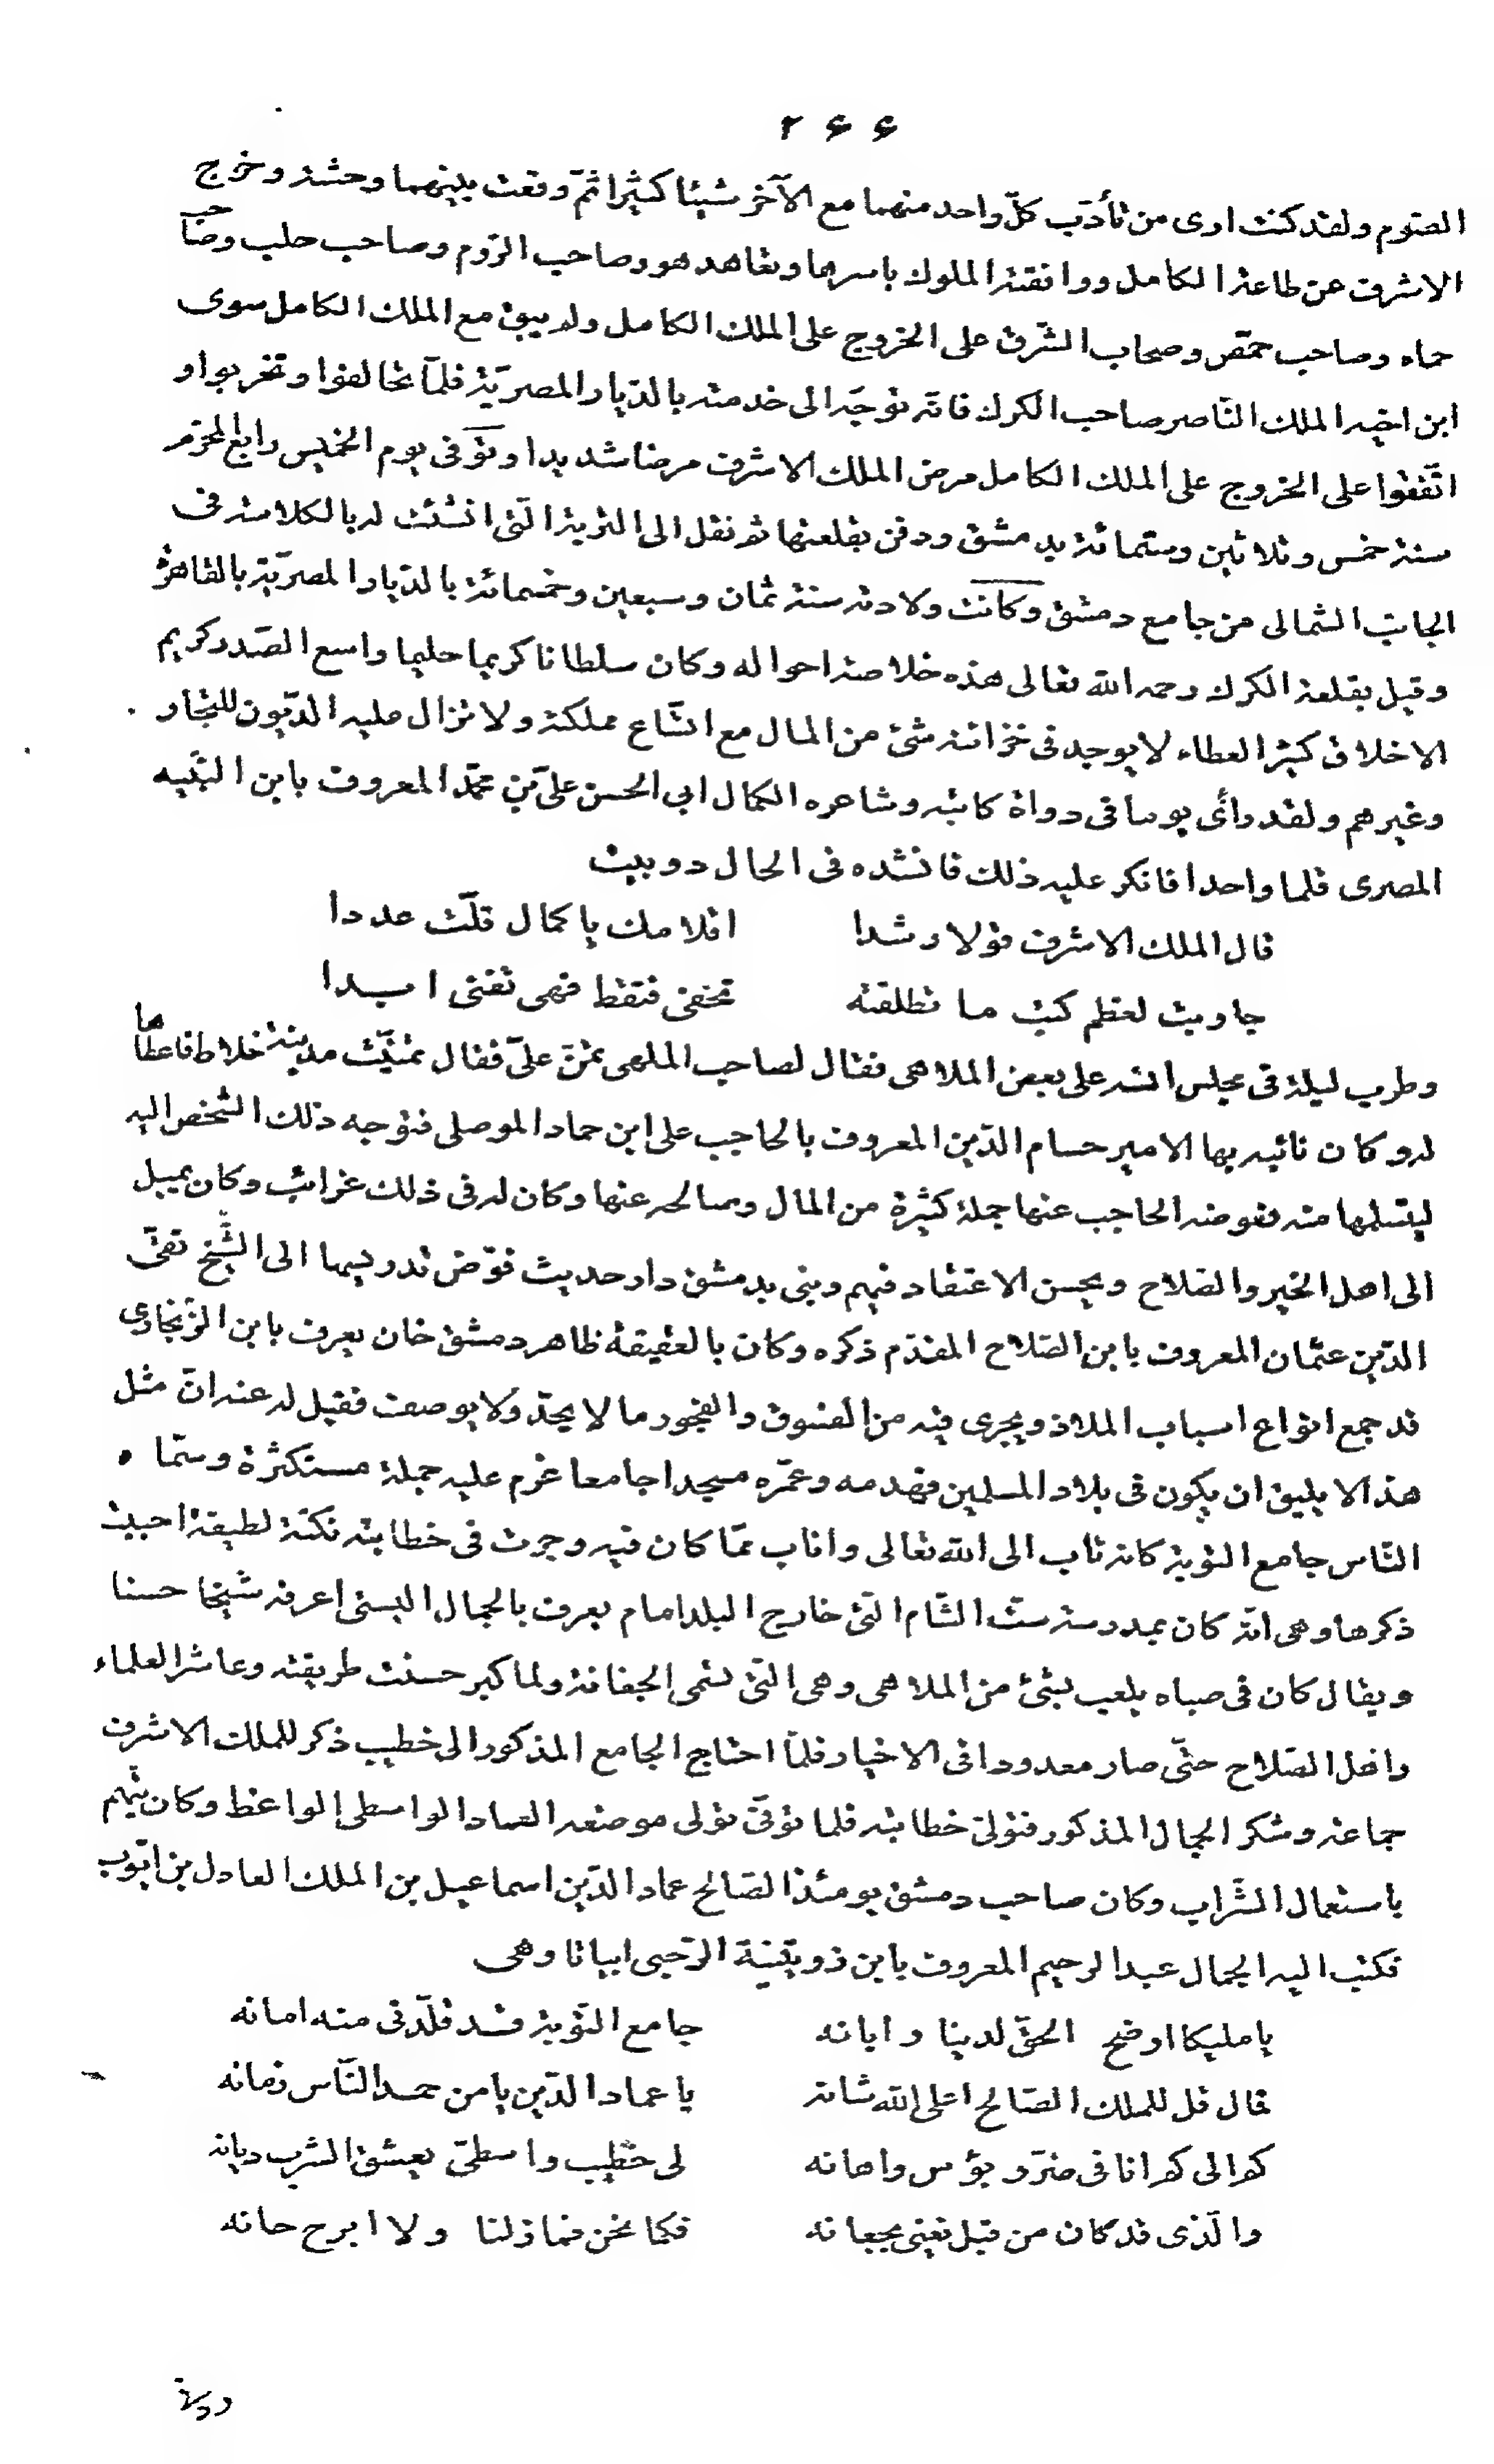 ۲۶۶
الصوم ولقد كنت ارى من تأدّب كلّ واحد منهما مع الآخر شيئا كثيرا ثمّ وقعت بينهما وحشة وخرج
الاشرف عن طاعة الكامل ووافقته الملوك باسرها وتعاهد هو وصاحب الرّوم وصاحب حلب وصاحب
حماه وصاحب حمص وصحاب الشّرق على الخروج على الملك الكامل ولم يبق مع الملك الكامل سوى
ابن اخيه الملك النّاصر صاحب الكرك فانّه توجّه الى خدمته بالدّيار المصريّة فلمّا تحالفوا وتحزبوا و
اتّفقوا على الخروج على الملك الكامل مرض الملك الاشرف مرضا شديدا وتوّفى يوم الخميس رابع المحرّم
سنة خمس وثلاثين وستمائة بدمشق ودفن بقلعتها ثم نقل الى التربة الّتى انشئت له بالكلاسة فى
الجانب الشمالى من جامع دمشق وكانت ولادته سنة ثمان وسبعين وخمسمائة بالدّيار المصريّة بالقاهرة
وقيل بقلعة الكرك رحمه الله تعالى هذه خلاصة احواله وكان سلطانا كريما حليما واسع الصّدر كريم
الاخلاق كثير العطاء لا يوجد فى خزائنه شئ من المال مع اتّساع مملكته ولا تزال عليه الدّيون للتجار
وغيرهم ولقد رأى يوما فى دواة كاتبه وشاعره الكمال ابى الحسن علىّ بن محمّد المعروف بابن النّبيه
المصرى قلما واحدا فانكر عليه ذلك فانشده فى الحال دوبيت
قال الملك الاشرف قولا رشدا اقلامك يا كمال قلّت عددا
جاوبت لعظم كتب ما تطلقه تحفى فتقط فهى تفنى ابدا
وطرب ليلة فى مجلس انسه على بعض الملاهى فقال لصاحب الملهى تمنّ علىّ فقال تمنّيت مدينة خلاط فاعطاها
له وكان نائبه بها الامير حسام الدّين المعروف بالحاجب على ابن حماد الموصلى فتوجه ذلك الشّخص اليه
ليتسلمها منه فعوضه الحاجب عنها جملة كثيرة من المال وصالحه عنها وكان له فى ذلك غرائب وكان يميل
الى اهل الخير والصّلاح ويحسن الاعتقاد فيهم وبنى بدمشق دار حديث فوّض تدريسها الى الشّيخ تقىّ
الدّين عثمان المعروف بابن الصّلاح المقدّم ذكره وكان بالعقيقة ظاهر دمشق خان يعرف بابن الزّنجارى
قد جمع انواع اسباب الملاذ ويجرى فيه من الفسوق والفجور ما لا يحدّ ولا يوصف فقيل له عنه انّ مثل
هذا لا يليق ان يكون فى بلاد المسلمين فهدمه وعمّره مسجدا جامعا غرم عليه جملة مستكثرة وسمّاه
النّاس جامع التّوبة كانه تاب الى الله تعالى واناب ممّا كان فيه وجرت فى خطابته نكتة لطيفة احببت
ذكرها وهى انّه كان بمدرسة ستّ الشّام الّتى خارج البلد امام يعرف بالجمال البستى اعرفه شيخا حسنا
ويقال كان فى صباه يلعب بشئ من الملاهى وهى الّتى تسمّى الجفانة ولما كبر حسنت طريقته وعاشر العلماء
واهل الصّلاح حتّى صار معدودا فى الاخيار فلمّا احتاج الجامع المذكور الى خطيب ذكر للملك الاشرف
جماعة وشكر الجمال المذكور فتولى خطابته فلما توفّى تولى موضعه العماد الواسطى الواعظ وكان يتّهم
باستعمال الشّراب وكان صاحب دمشق يومئذ الصّالح عماد الدّين اسماعيل بن الملك العادل بن ايّوب
فكتب اليه الجمال عبد الرحيم المعروف بابن ذويتينة الرّحبى ابياتا وهى
يا مليكا اوضح الحقّ لدينا وابانه جامع التّوبة قد قلّدنى منه امانه
قال قل للملك الصّالح اعلى الله شانه يا عماد الدّين يا من حمد النّاس زمانه
كم الى كم انا فى ضرّ وبؤس واهانه لى خطيب واسطىّ يعشق الشّرب ديانه
والّذى قد كان من قبل يغنى بجعانه فكما نحن فما زلنا ولا ابرح حانه